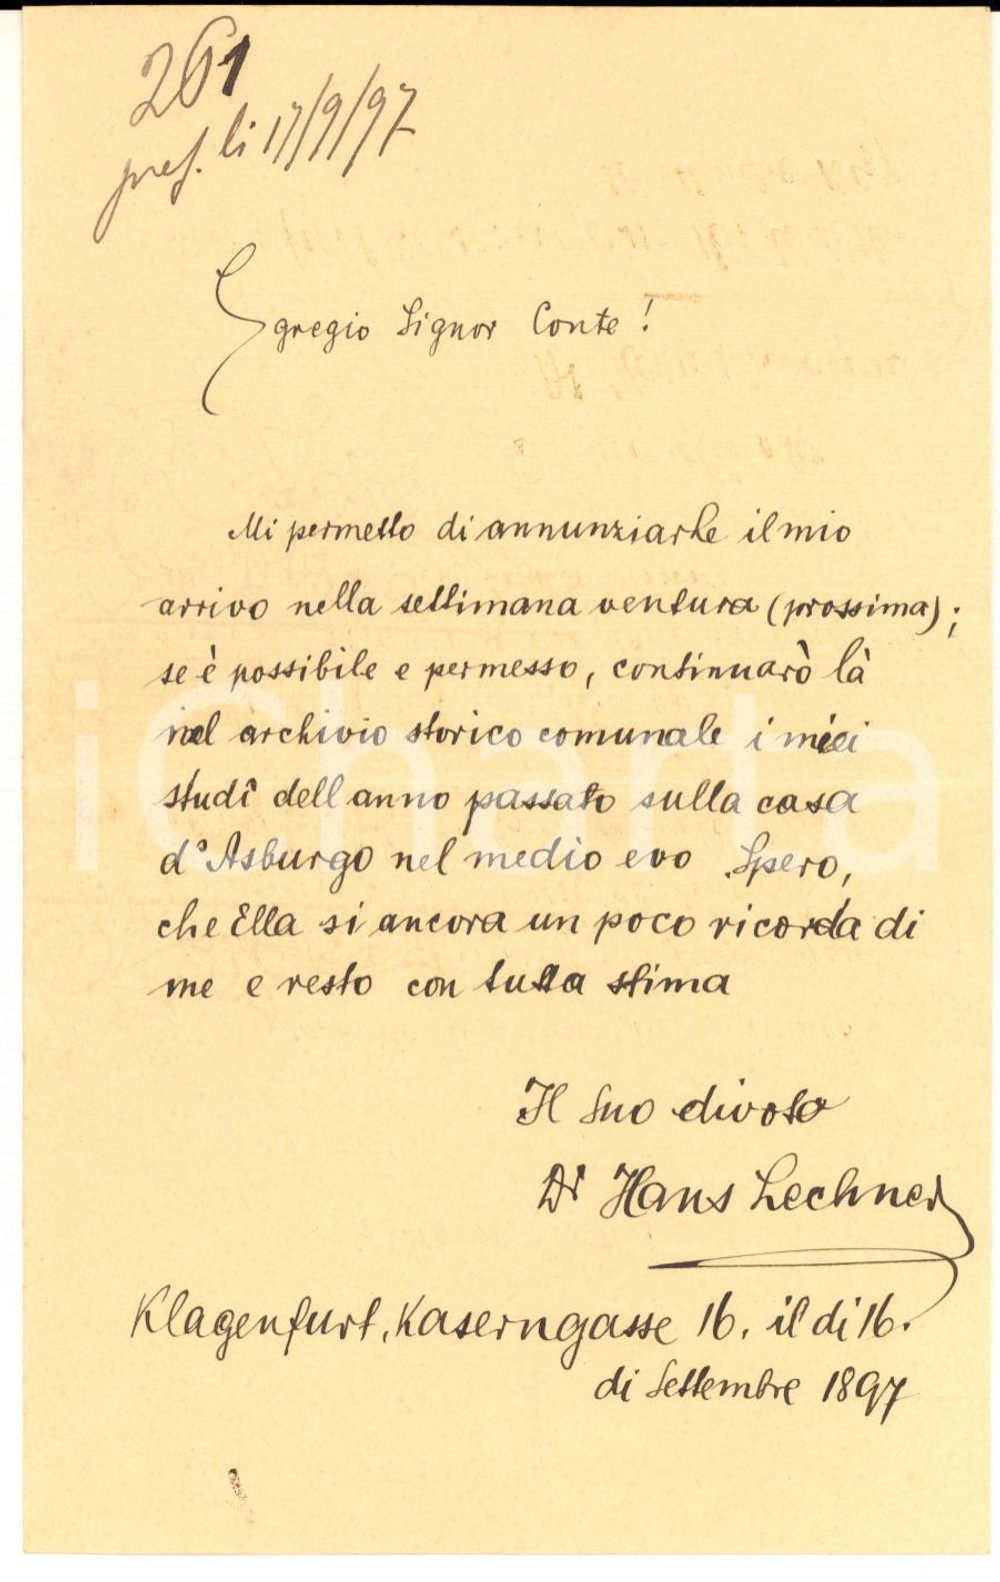 261
pres. li 17/9/97
Egregio Signor Conte!
Mi permetto di annunziarLe il mio
arrivo nella settimana ventura (prossima);
se è possibile e permesso, continuarò là
nel archivio storico comunale i miei
studî dell anno passato sulla casa
d'Asburgo nel medio evo Spero,
che Ella si ancora un poco ricorda di
me e resto con tutta stima
Il Suo divoto
Dr Hans Lechner
Klagenfurt, Kaserngasse 16. il di 16.
di Settembre 1897
iCharta